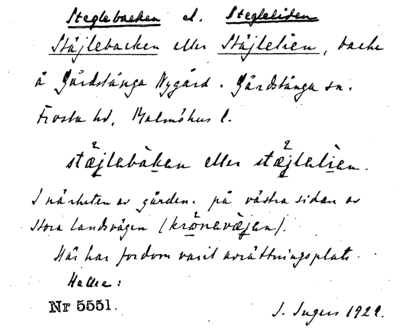 Steglebacken el. Stegleliden
Stäjlebacken eller Stäjlelien, backe
å Gårdstånga Nygård. Gårdstånga sn.
Frosta hd, Malmöhus l.
stæjlebäken eller stæjlelien.
I närheten av gården. på västra sidan av
stora landsvägen (krönavæjen).
Här har fordom varit avrättningsplats.
Nr 5551.
J. Ingers 1922.